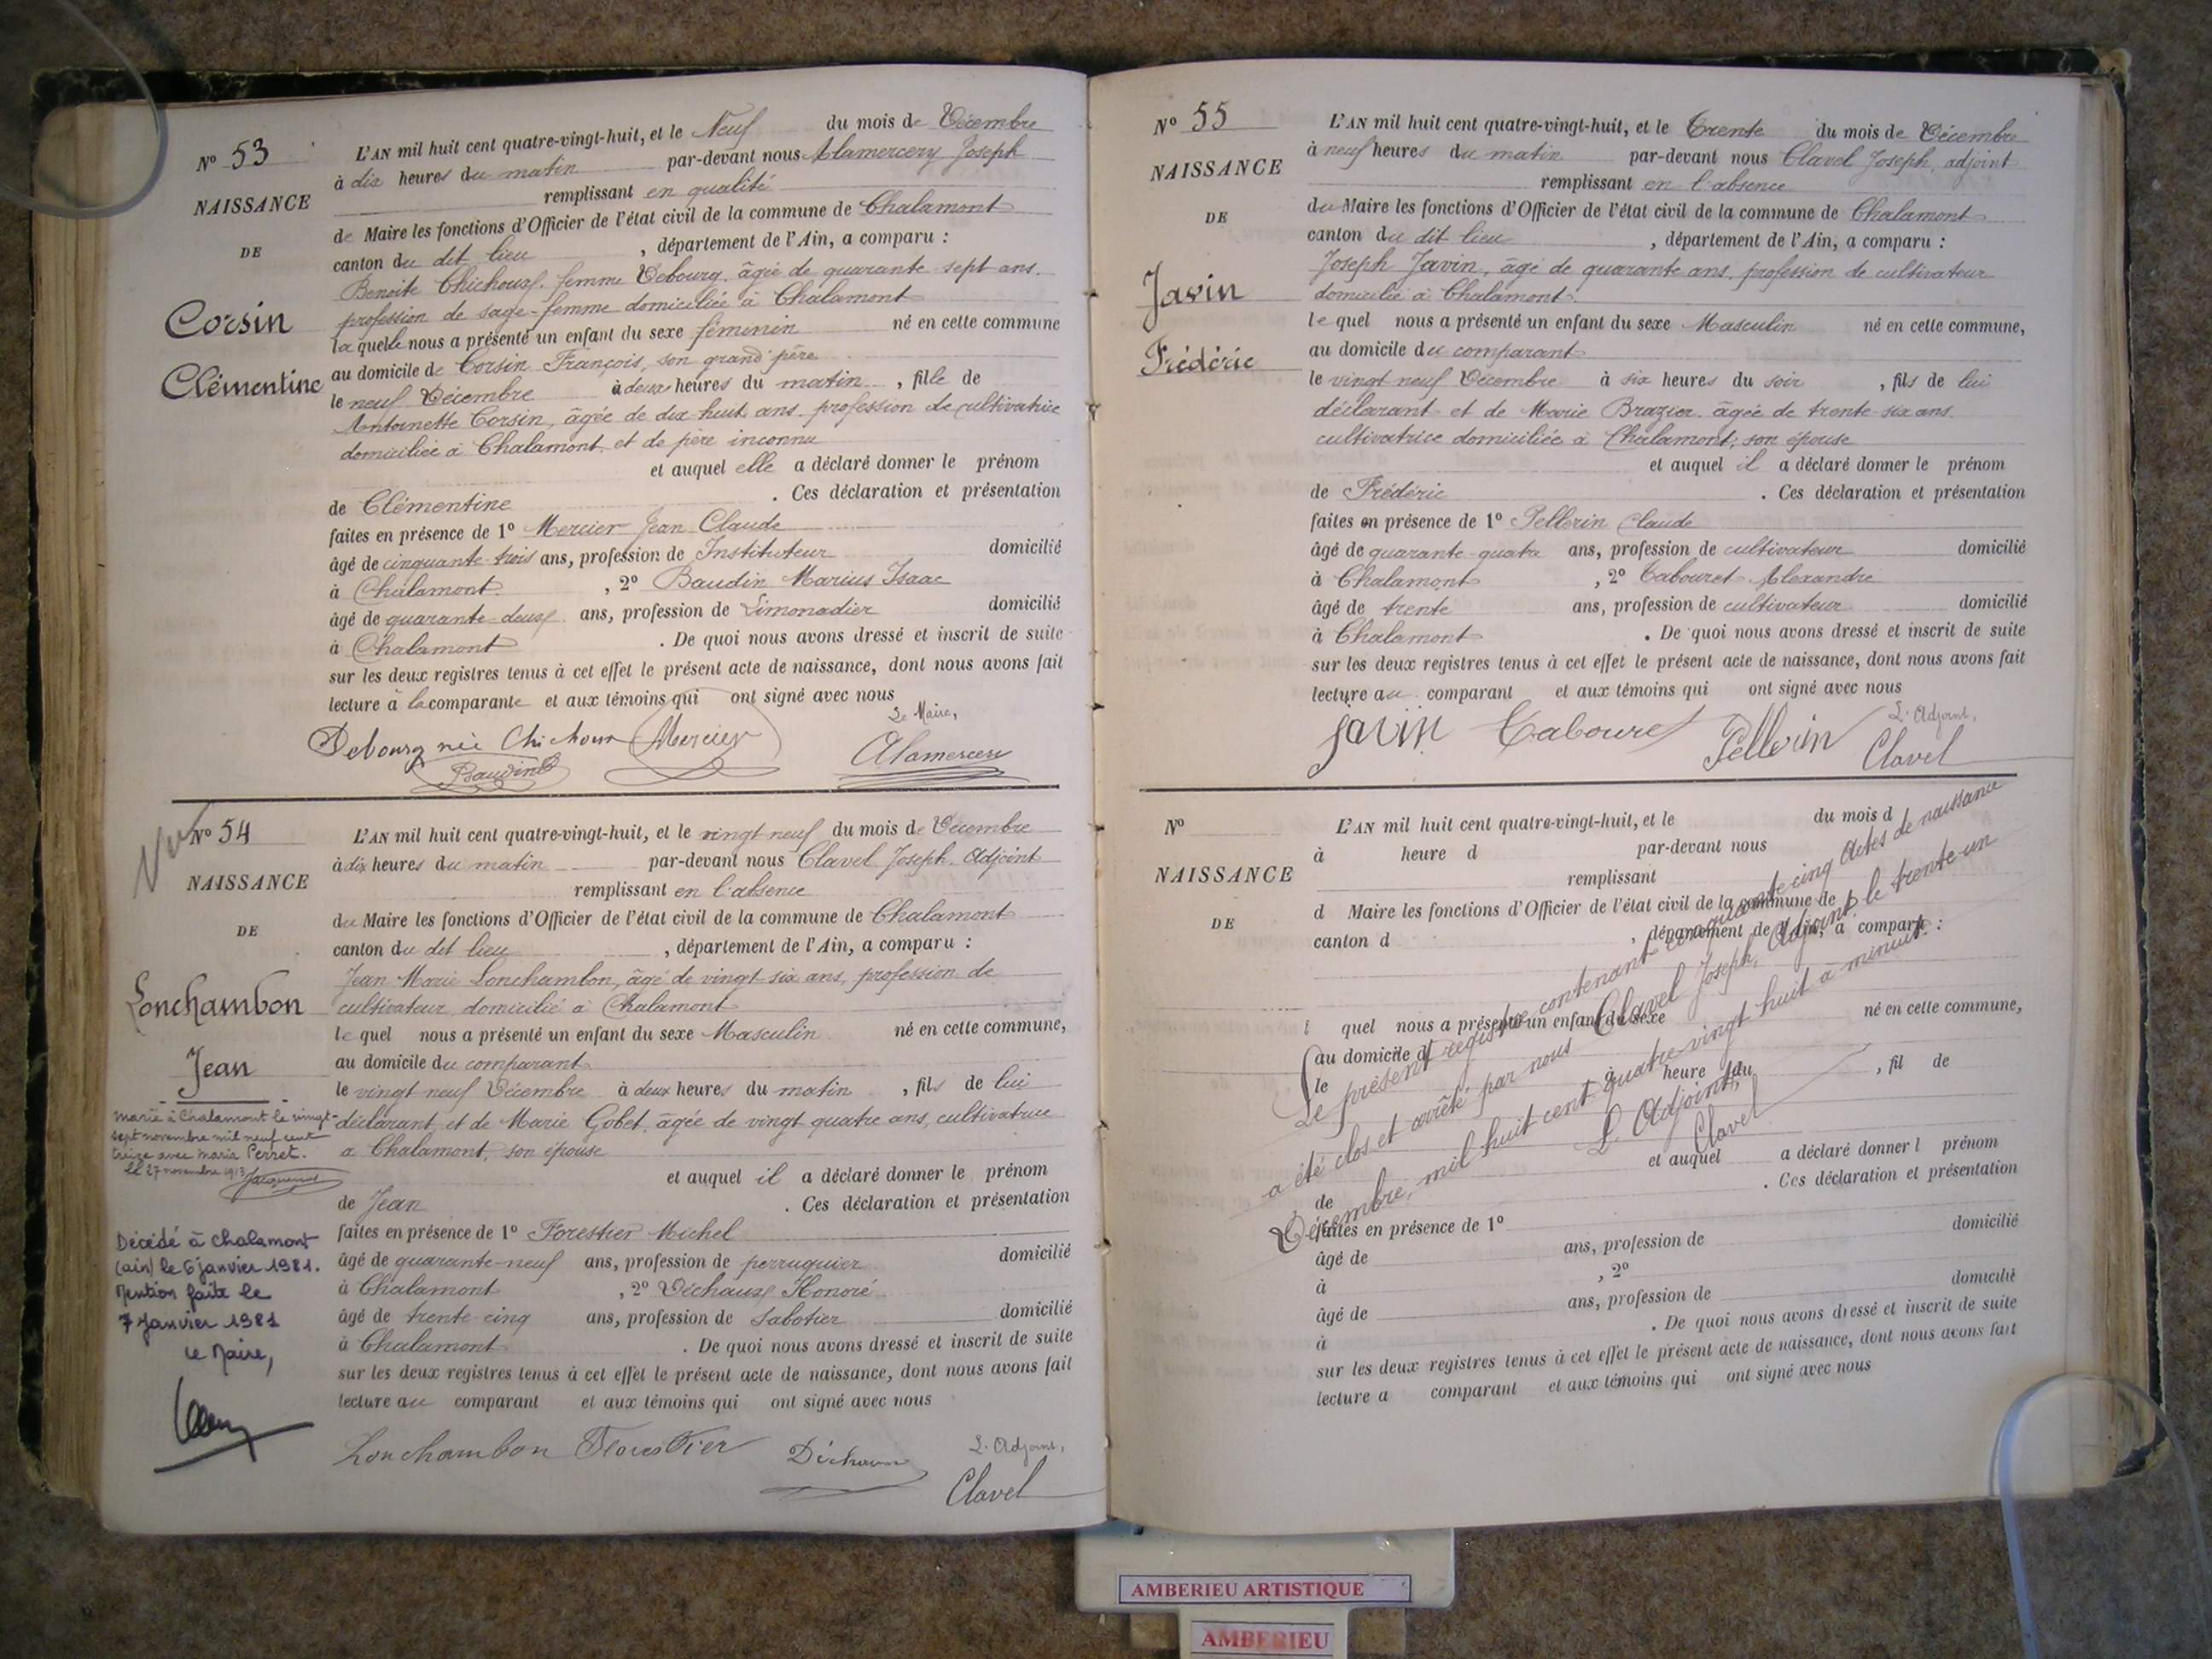 N° 53
NAISSANCE
DE
Corsin
Clémentine
L'AN mil huit cent quatre-vingt-huit, et le Neuf du mois de Décembre
à dix heures du matin par-devant nous Alamercery Joseph
remplissant en qualité
de Maire les fonctions d'Officier de l'état civil de la commune de Chalamont
canton du dit lieu, département de l'Ain, a comparu :
Benoite Chichoux, femme Debourg, âgée de quarante sept ans.
profession de sage-femme domiciliée à Chalamont
la quelle nous a présenté un enfant du sexe féminin né en cette commune
au domicile de Corsin François, son grand père
le neuf Décembre à deux heures du matin, fille de
Antoinette Corsin, âgée de dix huit ans, profession de cultivatrice
domiciliée à Chalamont, et de père inconnu
et auquel elle a déclaré donner le prénom
de Clémentine. Ces déclaration et présentation
faites en présence de 1° Mercier Jean Claude
âgé de cinquante trois ans, profession de Instituteur domicilié
à Chalamont, 2° Baudin Marius Isaac
âgé de quarante deux ans, profession de Limonadier domicilié
à Chalamont. De quoi nous avons dressé et inscrit de suite
sur les deux registres tenus à cet effet le présent acte de naissance, dont nous avons fait
lecture à la comparante et aux témoins qui ont signé avec nous
Le Maire,
Debourg née Chichoux Mercier
Baudin Alamercery
N° 54
NAISSANCE
DE
Lonchambon
Jean
marié à Chalamont le vingt-
sept novembre mil neuf cent
treize avec Maria Perret.
Le 27 novembre 1913
Décédé à Chalamont
(ain) le 6 janvier 1981.
Mention faite le
7 janvier 1981
Le Maire,
L'AN mil huit cent quatre-vingt-huit, et le vingt neuf du mois de Décembre
à dix heures du matin par-devant nous Clavel Joseph, Adjoint
remplissant en l'absence
du Maire les fonctions d'Officier de l'état civil de la commune de Chalamont
canton du dit lieu, département de l'Ain, a comparu :
Jean Marie Lonchambon, âgé de vingt six ans, profession de
cultivateur, domicilié à Chalamont
le quel nous a présenté un enfant du sexe Masculin né en cette commune,
au domicile du comparant
le vingt neuf Décembre à deux heures du matin, fils de lui
déclarant, et de Marie Gobet, âgée de vingt quatre ans, cultivatrice
a Chalamont, son épouse
et auquel il a déclaré donner le prénom
de Jean. Ces déclaration et présentation
faites en présence de 1° Forestier Michel
âgé de quarante-neuf ans, profession de perruquier domicilié
à Chalamont, 2° Déchaux Honoré
âgé de trente cinq ans, profession de Sabotier domicilié
à Chalamont. De quoi nous avons dressé et inscrit de suite
sur les deux registres tenus à cet effet le présent acte de naissance, dont nous avons fait
lecture au comparant et aux témoins qui ont signé avec nous
L'Adjoint,
Lonchambon Florestier Déchaux Clavel
N° 55
NAISSANCE
DE
Javin
Frédéric
L'AN mil huit cent quatre-vingt-huit, et le Trente du mois de Décembre
à neuf heures du matin par-devant nous Clavel Joseph, adjoint
remplissant en l'absence
du Maire les fonctions d'Officier de l'état civil de la commune de Chalamont
canton du dit lieu, département de l'Ain, a comparu :
Joseph Javin, âgé de quarante ans, profession de cultivateur
domicilié à Chalamont.
le quel nous a présenté un enfant du sexe Masculin né en cette commune,
au domicile du comparant
le vingt neuf Décembre à six heures du soir, fils de lui
déclarant et de Marie Brazier, âgée de trente six ans.
cultivatrice domiciliée à Chalamont, son épouse
et auquel il a déclaré donner le prénom
de Frédéric. Ces déclaration et présentation
faites en présence de 1° Pellerin Claude
âgé de quarante-quatre ans, profession de cultivateur domicilié
à Chalamont, 2° Tabouret Alexandre
âgé de trente ans, profession de cultivateur domicilié
à Chalamont. De quoi nous avons dressé et inscrit de suite
sur les deux registres tenus à cet effet le présent acte de naissance, dont nous avons fait
lecture au comparant et aux témoins qui ont signé avec nous
L'Adjoint,
Javin Tabouret Pellerin Clavel
N°
NAISSANCE
DE
L'AN mil huit cent quatre-vingt-huit, et le du mois d
à heure d par-devant nous
remplissant
d Maire les fonctions d'Officier de l'état civil de la commune de
canton d, département de l'Ain, a comparu :
l quel nous a présenté un enfant du sexe né en cette commune,
au domicile d
le à heure du, fil de
et auquel a déclaré donner l prénom
de. Ces déclaration et présentation
faites en présence de 1°
âgé de ans, profession de domicilié
à, 2°
âgé de ans, profession de domicilié
à. De quoi nous avons dressé et inscrit de suite
sur les deux registres tenus à cet effet le présent acte de naissance, dont nous avons fait
lecture a comparant et aux témoins qui ont signé avec nous
Le présent registre contenant cinquante cinq Actes de naissance
a été clos et arrêté par nous Clavel Joseph, Adjoint, le trente-un
Décembre, mil huit cent quatre vingt huit à minuit.
L'Adjoint,
Clavel
AMBERIEU ARTISTIQUE
AMBERIEU